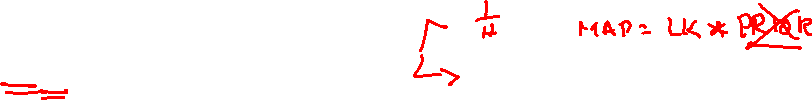 1/H
MAP = LK * PRIOR